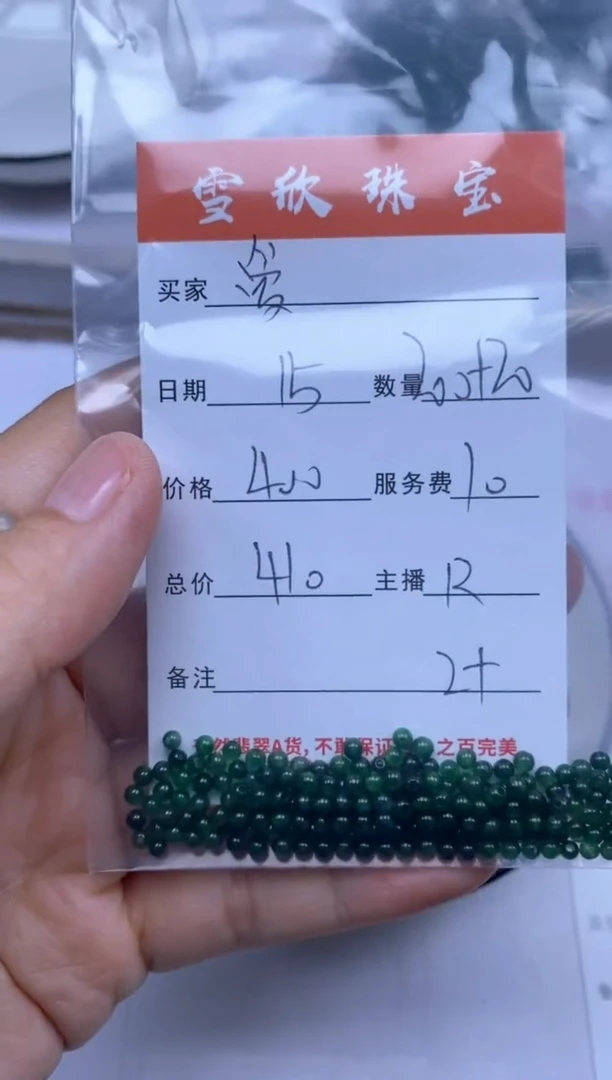 雪欣珠宝
买家
日期 15 数量 200+20
价格 400 服务费 10
总价 410 主播 R
备注 2+
然翡翠A货,不敢保证 之百完美